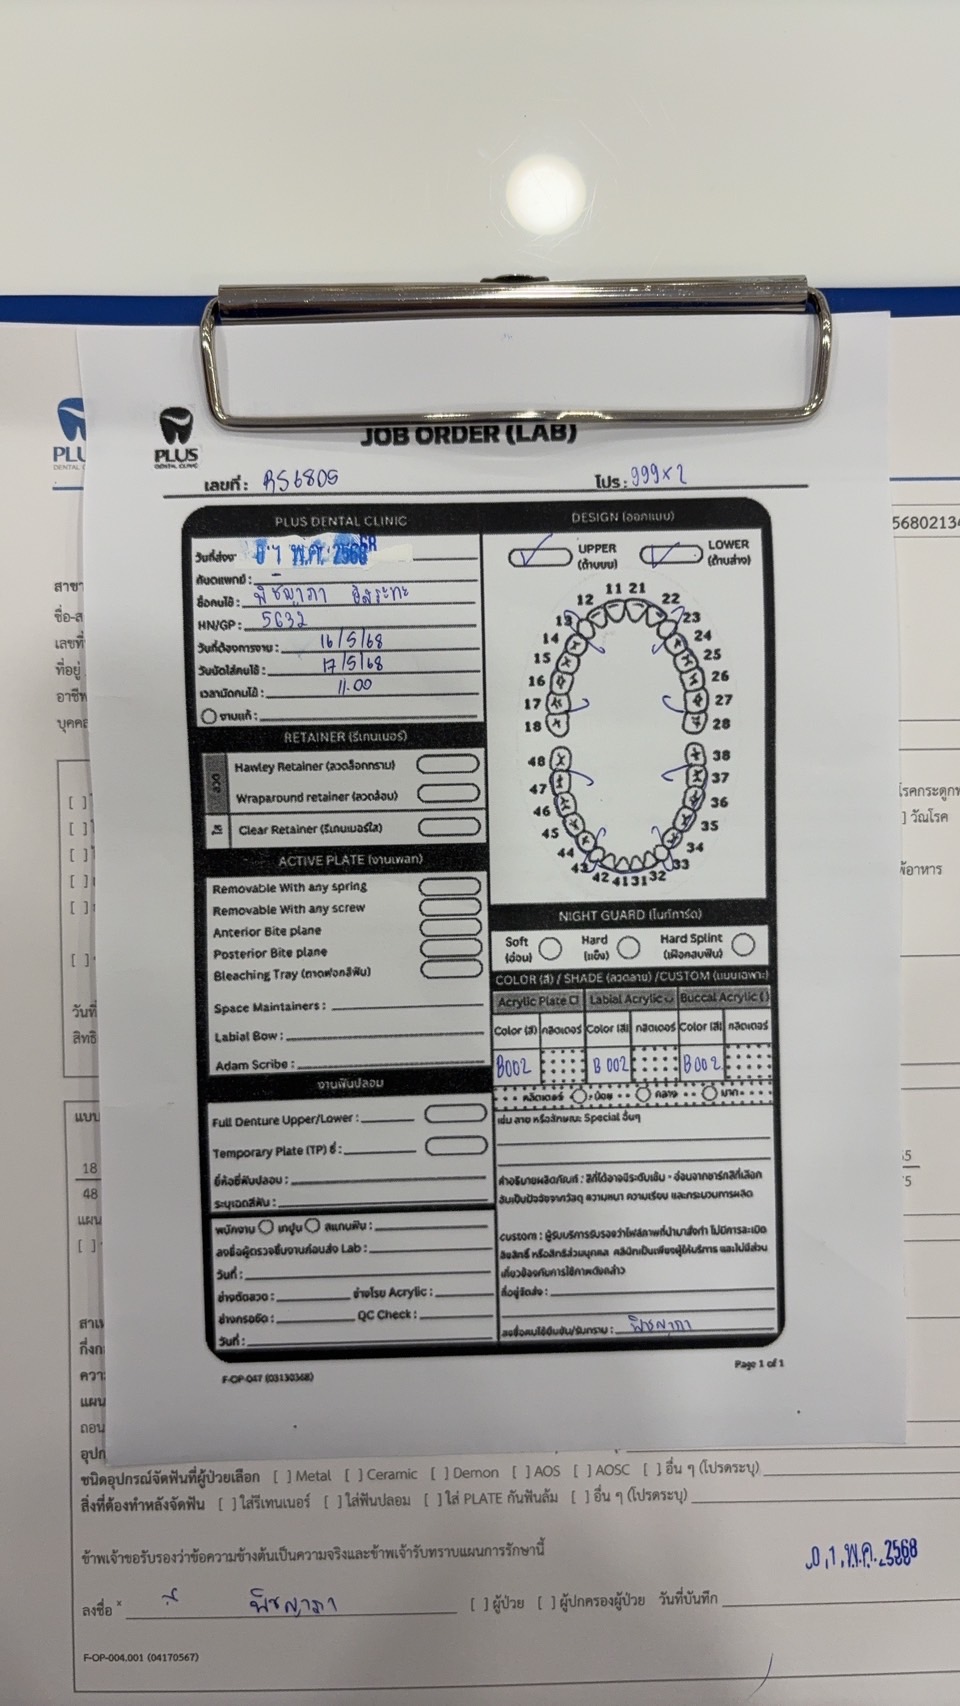 JOB ORDER (LAB)
PLUS
DENTAL CLINIC
เลขที่ : RS6805
โปร : 999x2
PLUS DENTAL CLINIC
วันที่ส่ง
พ.ค. 2568
ทันตแพทย์ :
ชื่อคนไข้ : พิชญาภา
HN/GP : 5632
วันที่ต้องการงาน : 16/5/68
วันนัดใส่คนไข้ : 17/5/68
เวลานัดคนไข้ : 11.00
งานแก้ :
RETAINER (รีเทนเนอร์)
ลวด
Hawley Retainer (ลวดล็อกกราม)
Wraparound retainer (ลวดล้อม)
ใส
Clear Retainer (รีเทนเนอร์ใส)
ACTIVE PLATE (งานเพลท)
Removable With any spring
Removable With any screw
Anterior Bite plane
Posterior Bite plane
Bleaching Tray (ถาดฟอกสีฟัน)
Space Maintainers :
Labial Bow :
Adam Scribe :
งานฟันปลอม
Full Denture Upper/Lower :
Temporary Plate (TP) ซี่ :
ยี่ห้อซี่ฟันปลอม :
ระบุเฉดสีฟัน :
พนักงาน เทปูน สแกนฟัน :
ลงชื่อผู้ตรวจชิ้นงานก่อนส่ง Lab :
วันที่ :
ช่างดัดลวด : ช่างโรย Acrylic :
ช่างกรอขัด : QC Check :
วันที่ :
DESIGN (ออกแบบ)
UPPER
(ด้านบน)
LOWER
(ด้านล่าง)
11 21
12 22
13 23
14 24
15 25
16 26
17 27
18 28
48 38
47 37
46 36
45 35
44 34
43 33
42 41 31 32
NIGHT GUARD (ไนท์การ์ด)
Soft
(อ่อน)
Hard
(แข็ง)
Hard Splint
(เฝือกสบฟัน)
COLOR (สี) / SHADE (ลวดลาย) /CUSTOM (แบบเฉพาะ)
Acrylic Plate Labial Acrylic Buccal Acrylic ( )
Color (สี) กลิตเตอร์ Color (สี) กลิตเตอร์ Color (สี) กลิตเตอร์
B002 B002 B002
กลิตเตอร์ : น้อย กลาง มาก
เช่น ลาย หรือลักษณะ Special อื่นๆ
คำอธิบายผลิตภัณฑ์ : สีที่ได้อาจมีระดับเข้ม - อ่อนจากชาร์ทสีที่เลือก
อันเป็นปัจจัยจากวัสดุ ความหนา ความเรียบ และกระบวนการผลิต
custom : ผู้รับบริการรับรองว่าไฟล์ภาพที่นำมาสั่งทำ ไม่มีการละเมิด
ลิขสิทธิ์ หรือสิทธิส่วนบุคคล คลินิกเป็นเพียงผู้ให้บริการ และไม่มีส่วน
เกี่ยวข้องกับการใช้ภาพดังกล่าว
ที่อยู่จัดส่ง :
ลงชื่อคนไข้ยืนยัน/รับทราบ : พิชญาภา
F-OP-047 (03130368)
Page 1 of 1
PLU
DENTAL
5680213
สาขา
ชื่อ-ส
เลขที่
ที่อยู่
อาชีพ
บุคคล
โรคกระดูกพ
] วัณโรค
พ้อาหาร
วันที่
สิทธิ
แบบ
18
48
แผน
ความ
แผน
ถอน
อุปก
ชนิดอุปกรณ์จัดฟันที่ผู้ป่วยเลือก [ ] Metal [ ] Ceramic [ ] Demon [ ] AOS [ ] AOSC [ ] อื่น ๆ (โปรดระบุ)
สิ่งที่ต้องทำหลังจัดฟัน [ ] ใส่รีเทนเนอร์ [ ] ใส่ฟันปลอม [ ] ใส่ PLATE กันฟันล้ม [ ] อื่น ๆ (โปรดระบุ)
ข้าพเจ้าขอรับรองว่าข้อความข้างต้นเป็นความจริงและข้าพเจ้ารับทราบแผนการรักษานี้
0 1 พ.ค. 2568
ลงชื่อ × พิชญาภา [ ] ผู้ป่วย [ ] ผู้ปกครองผู้ป่วย วันที่บันทึก
F-OP-004.001 (04170567)